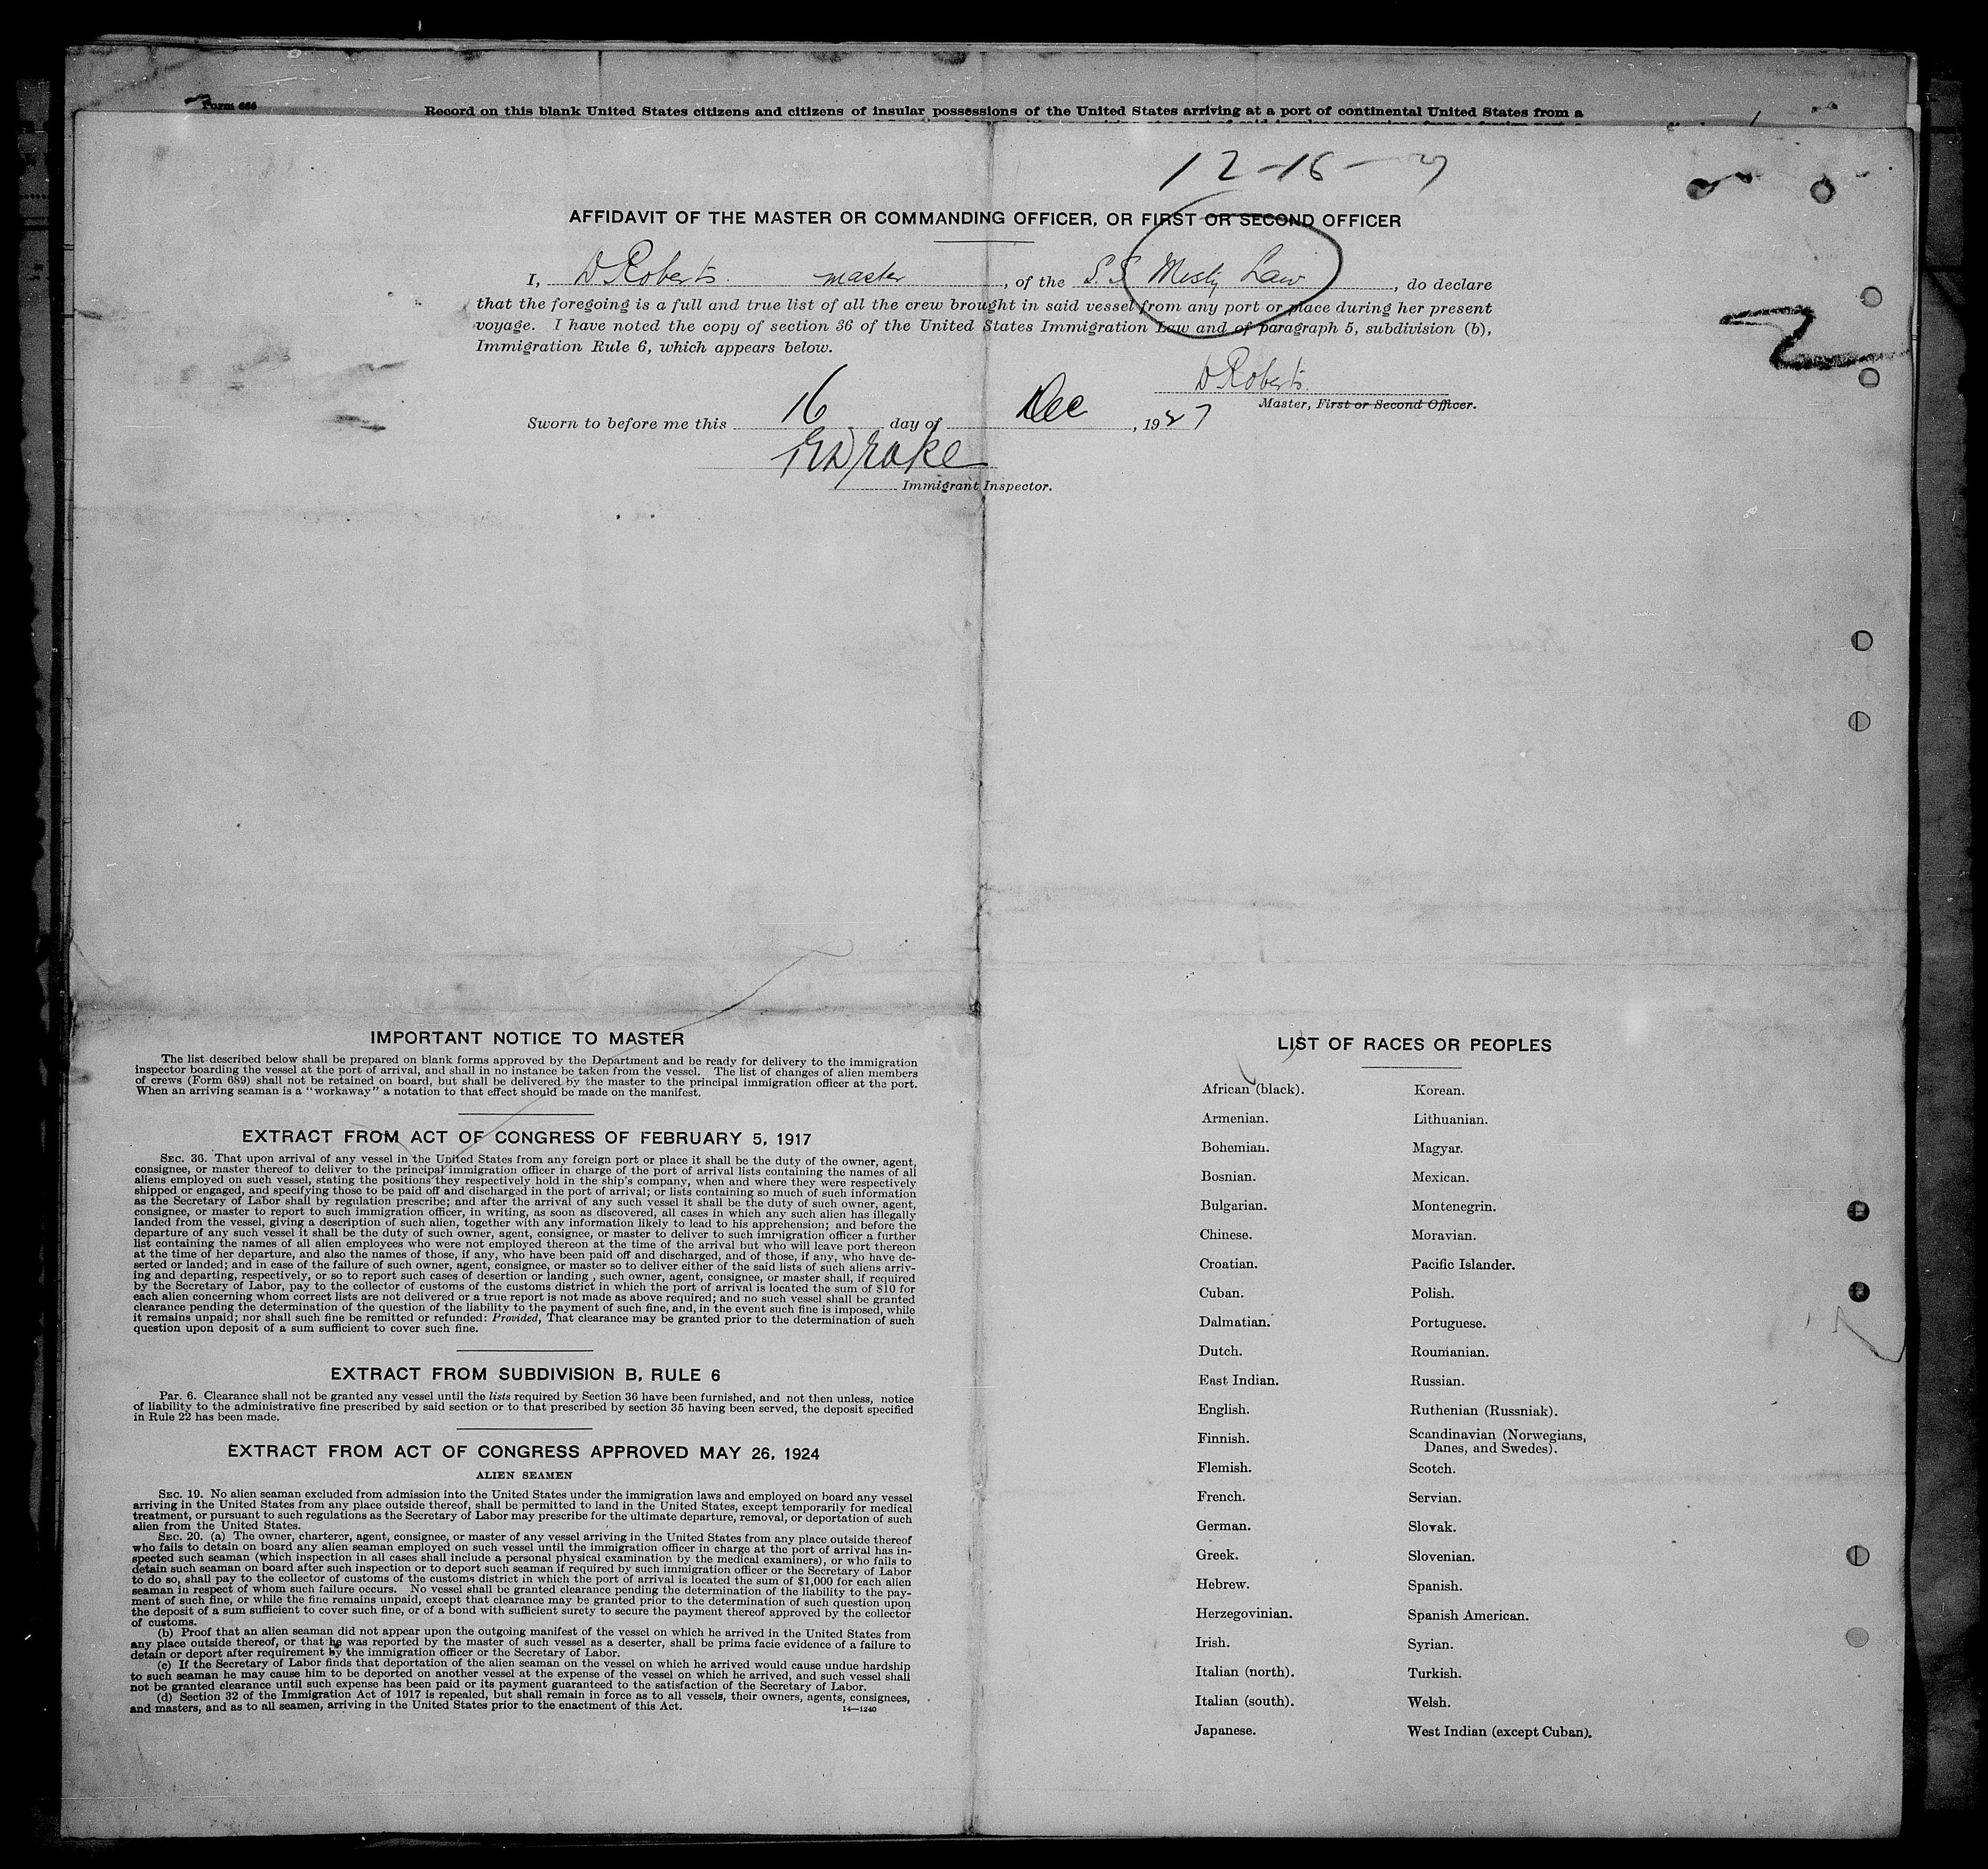 Form 686
Record on this blank United States citizens and citizens of insular possessions of the United States arriving at a port of continental United States from a
12-16-27
AFFIDAVIT OF THE MASTER OR COMMANDING OFFICER, OR FIRST OR SECOND OFFICER
I, D Roberts master, of the S.S. Misty Law, do declare
that the foregoing is a full and true list of all the crew brought in said vessel from any port or place during her present
voyage. I have noted the copy of section 36 of the United States Immigration Law and of paragraph 5, subdivision (b),
Immigration Rule 6, which appears below.
2
D Roberts
Master, First or Second Officer.
Sworn to before me this 16 day of Dec, 1927
Drake
Immigrant Inspector.
IMPORTANT NOTICE TO MASTER
The list described below shall be prepared on blank forms approved by the Department and be ready for delivery to the immigration
inspector boarding the vessel at the port of arrival, and shall in no instance be taken from the vessel. The list of changes of alien members
of crews (Form 689) shall not be retained on board, but shall be delivered by the master to the principal immigration officer at the port.
When an arriving seaman is a "workaway" a notation to that effect should be made on the manifest.
EXTRACT FROM ACT OF CONGRESS OF FEBRUARY 5, 1917
SEC. 36. That upon arrival of any vessel in the United States from any foreign port or place it shall be the duty of the owner, agent,
consignee, or master thereof to deliver to the principal immigration officer in charge of the port of arrival lists containing the names of all
aliens employed on such vessel, stating the positions they respectively hold in the ship's company, when and where they were respectively
shipped or engaged, and specifying those to be paid off and discharged in the port of arrival; or lists containing so much of such information
as the Secretary of Labor shall by regulation prescribe; and after the arrival of any such vessel it shall be the duty of such owner, agent,
consignee, or master to report to such immigration officer, in writing, as soon as discovered, all cases in which any such alien has illegally
landed from the vessel, giving a description of such alien, together with any information likely to lead to his apprehension; and before the
departure of any such vessel it shall be the duty of such owner, agent, consignee, or master to deliver to such immigration officer a further
list containing the names of all alien employees who were not employed thereon at the time of the arrival but who will leave port thereon
at the time of her departure, and also the names of those, if any, who have been paid off and discharged, and of those, if any, who have de-
serted or landed; and in case of the failure of such owner, agent, consignee, or master so to deliver either of the said lists of such aliens arriv-
ing and departing, respectively, or so to report such cases of desertion or landing, such owner, agent, consignee, or master shall, if required
by the Secretary of Labor, pay to the collector of customs of the customs district in which the port of arrival is located the sum of $10 for
each alien concerning whom correct lists are not delivered or a true report is not made as above required; and no such vessel shall be granted
clearance pending the determination of the question of the liability to the payment of such fine, and, in the event such fine is imposed, while
it remains unpaid; nor shall such fine be remitted or refunded: Provided, That clearance may be granted prior to the determination of such
question upon deposit of a sum sufficient to cover such fine.
EXTRACT FROM SUBDIVISION B, RULE 6
Par. 6. Clearance shall not be granted any vessel until the lists required by Section 36 have been furnished, and not then unless, notice
of liability to the administrative fine prescribed by said section or to that prescribed by section 35 having been served, the deposit specified
in Rule 22 has been made.
EXTRACT FROM ACT OF CONGRESS APPROVED MAY 26, 1924
ALIEN SEAMEN
SEC. 19. No alien seaman excluded from admission into the United States under the immigration laws and employed on board any vessel
arriving in the United States from any place outside thereof, shall be permitted to land in the United States, except temporarily for medical
treatment, or pursuant to such regulations as the Secretary of Labor may prescribe for the ultimate departure, removal, or deportation of such
alien from the United States.
SEC. 20. (a) The owner, charterer, agent, consignee, or master of any vessel arriving in the United States from any place outside thereof
who fails to detain on board any alien seaman employed on such vessel until the immigration officer in charge at the port of arrival has in-
spected such seaman (which inspection in all cases shall include a personal physical examination by the medical examiners), or who fails to
detain such seaman on board after such inspection or to deport such seaman if required by such immigration officer or the Secretary of Labor
to do so, shall pay to the collector of customs of the customs district in which the port of arrival is located the sum of $1,000 for each alien
seaman in respect of whom such failure occurs. No vessel shall be granted clearance pending the determination of the liability to the pay-
ment of such fine, or while the fine remains unpaid, except that clearance may be granted prior to the determination of such question upon
the deposit of a sum sufficient to cover such fine, or of a bond with sufficient surety to secure the payment thereof approved by the collector
of customs.
(b) Proof that an alien seaman did not appear upon the outgoing manifest of the vessel on which he arrived in the United States from
any place outside thereof, or that he was reported by the master of such vessel as a deserter, shall be prima facie evidence of a failure to
detain or deport after requirement by the immigration officer or the Secretary of Labor.
(c) If the Secretary of Labor finds that deportation of the alien seaman on the vessel on which he arrived would cause undue hardship
to such seaman he may cause him to be deported on another vessel at the expense of the vessel on which he arrived, and such vessel shall
not be granted clearance until such expense has been paid or its payment guaranteed to the satisfaction of the Secretary of Labor.
(d) Section 32 of the Immigration Act of 1917 is repealed, but shall remain in force as to all vessels, their owners, agents, consignees,
and masters, and as to all seamen, arriving in the United States prior to the enactment of this Act.
14—1240
LIST OF RACES OR PEOPLES
African (black). Korean.
Armenian. Lithuanian.
Bohemian. Magyar.
Bosnian. Mexican.
Bulgarian. Montenegrin.
Chinese. Moravian.
Croatian. Pacific Islander.
Cuban. Polish.
Dalmatian. Portuguese.
Dutch. Roumanian.
East Indian. Russian.
English. Ruthenian (Russniak).
Finnish. Scandinavian (Norwegians,
Danes, and Swedes).
Flemish. Scotch.
French. Servian.
German. Slovak.
Greek. Slovenian.
Hebrew. Spanish.
Herzegovinian. Spanish American.
Irish. Syrian.
Italian (north). Turkish.
Italian (south). Welsh.
Japanese. West Indian (except Cuban).